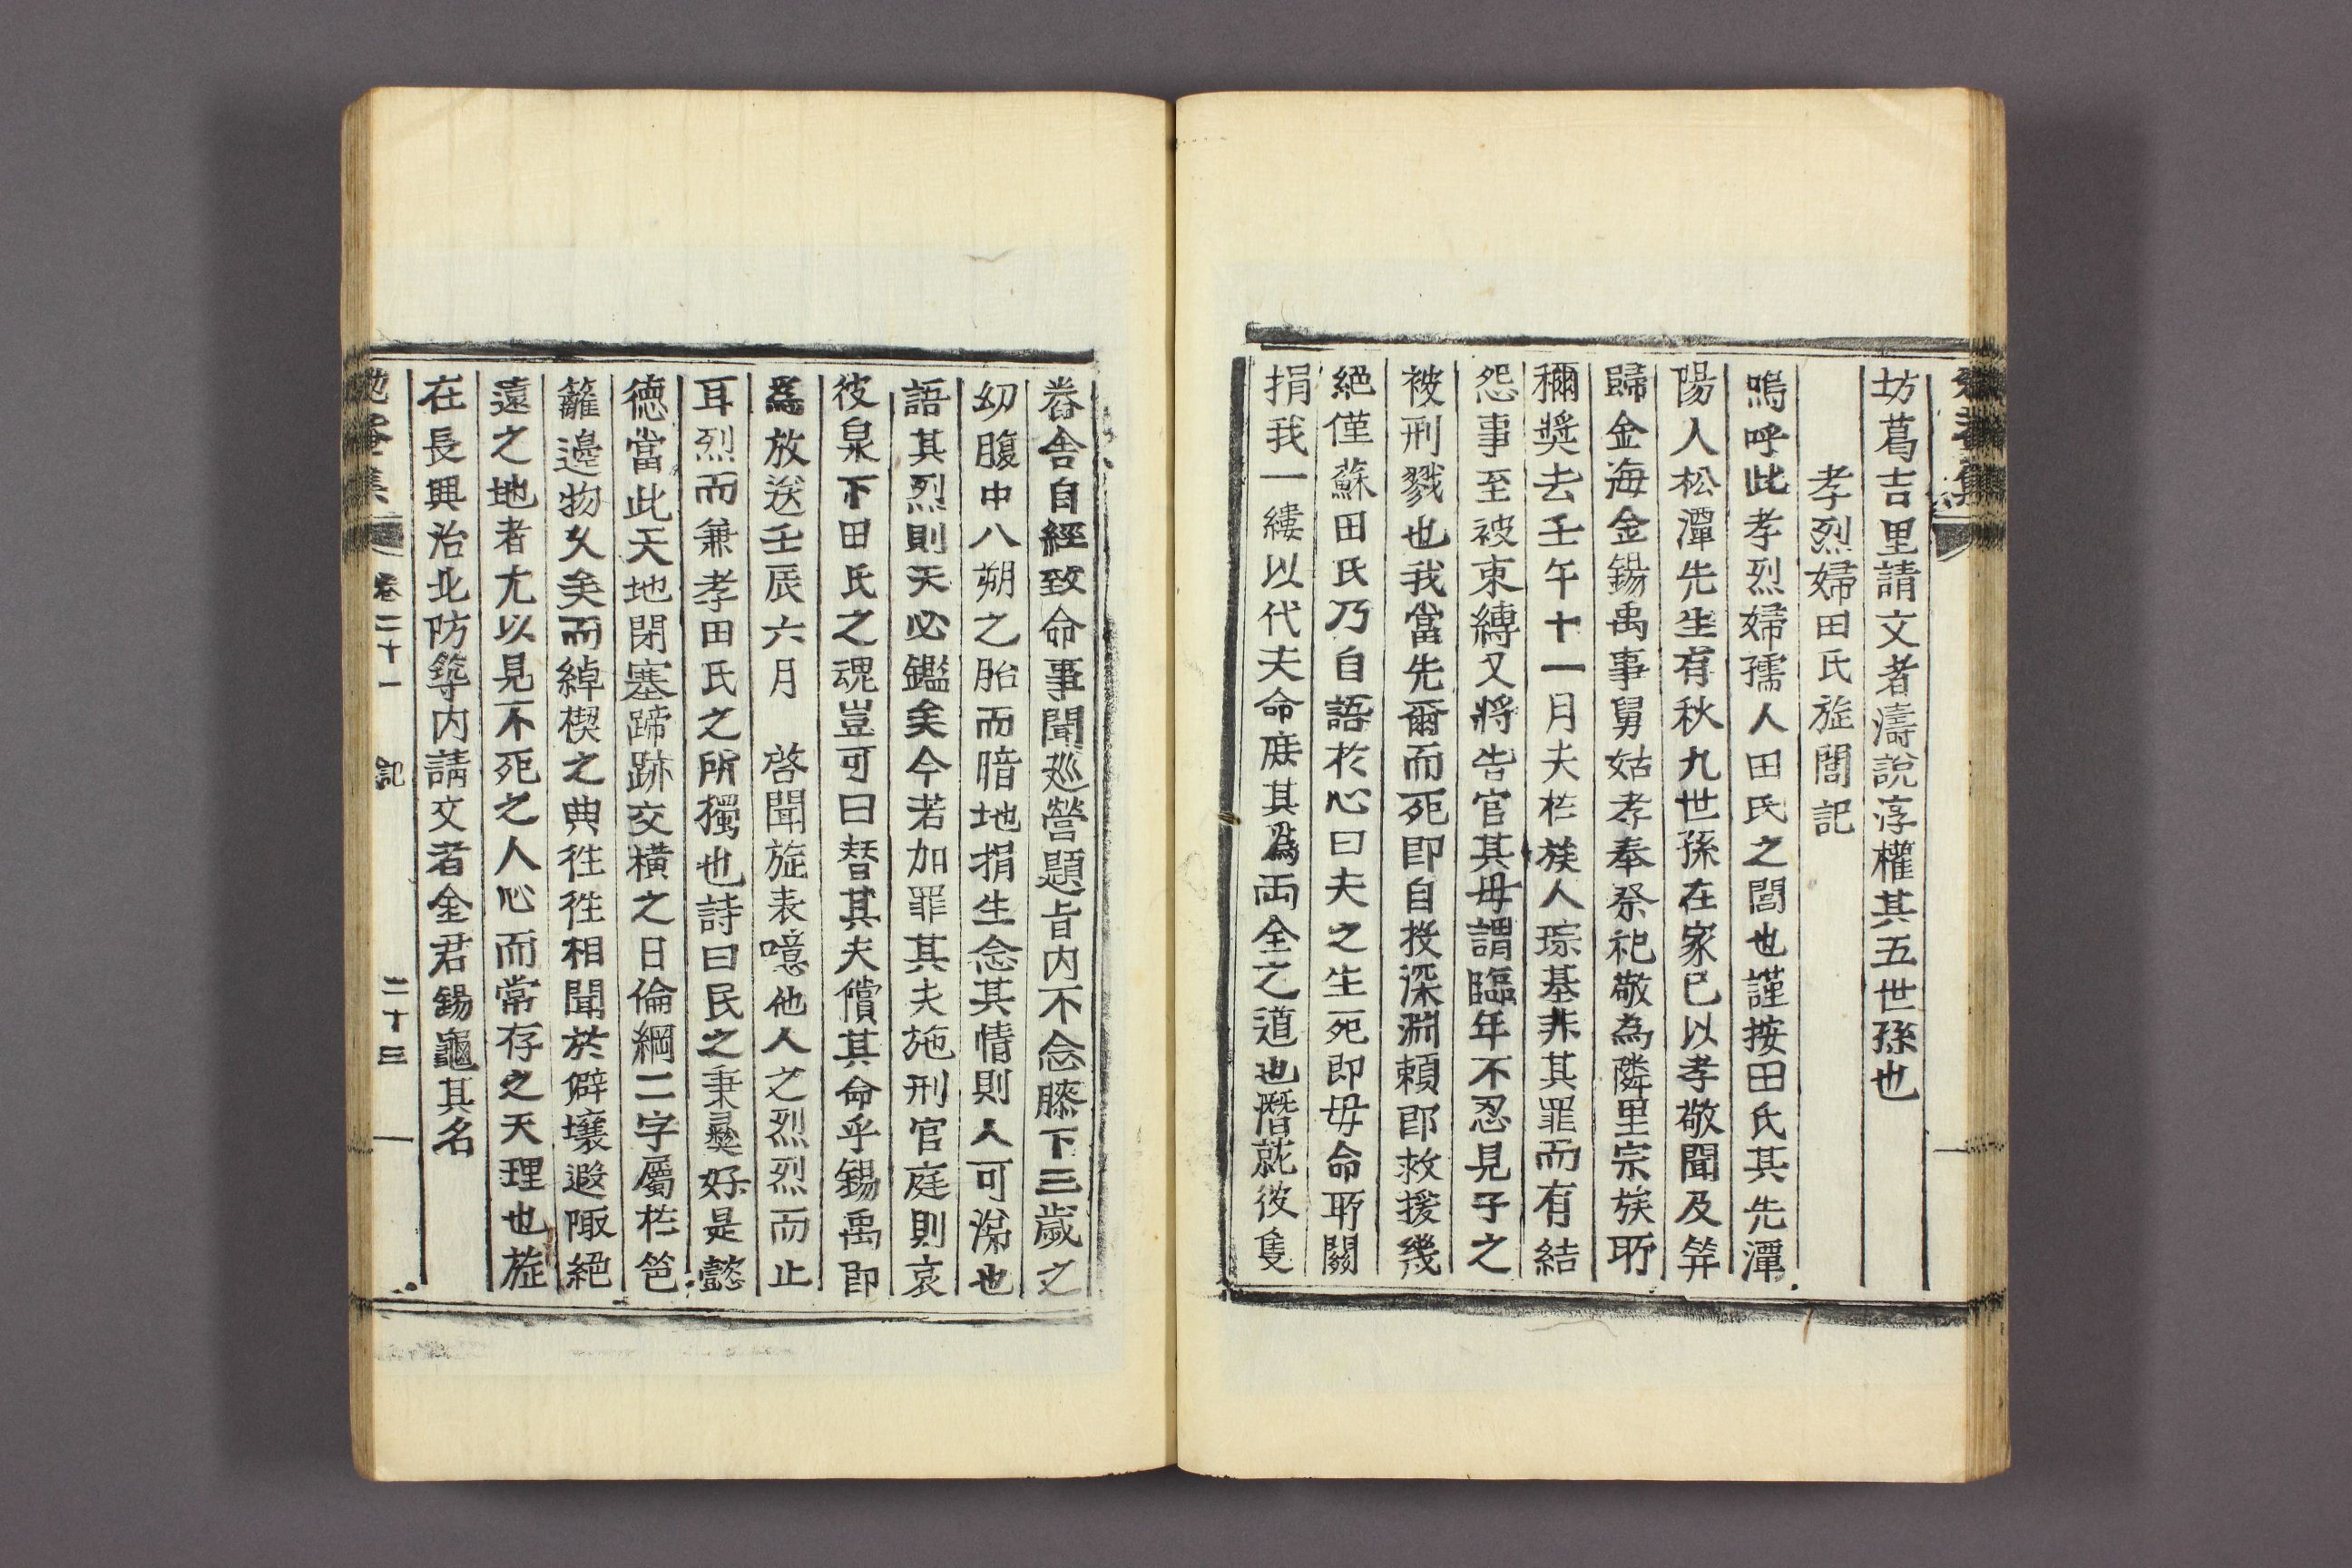 坊葛吉里請文者濤說淳權其五世孫也
孝烈婦田氏旌閭記
嗚呼此孝烈婦孺人田氏之閭也謹按田氏其先潭
陽人松潭先生有秋九世孫在家已以孝敬聞及筓
歸金海金錫禹事舅姑孝奉祭祀敬為隣里宗族所
稱奬去壬午十一月夫在族人琮基非其罪而有結
怨事至被束縛又將告官其母謂臨年不忍見子之
被刑戮也我當先爾而死即自投深淵賴即救援幾
絕僅蘇田氏乃自語於心曰夫之生死即母命所關
捐我一縷以代夫命庶其為両全之道也潛就彼隻
眷舍自經致命事聞巡營題旨內不念膝下三歲之
幼腹中八朔之胎而暗地捐生念其情則人可涕也
語其烈則天必鑑矣今若加罪其夫施刑官庭則哀
彼泉下田氏之魂豈可曰替其夫償其命乎錫禹即
為放送壬辰六月 啓聞旌表噫他人之烈烈而止
耳烈而兼孝田氏之所獨也詩曰民之秉彝好是懿
德當此天地閉塞蹄跡交橫之日倫綱二字屬在笆
籬邊物久矣而綽楔之典徃徃相聞於僻壤遐陬絕
遠之地者尤以見不死之人心而常存之天理也旌
在長興治北防築內請文者金君錫龜其名
卷二十一 記 二十三